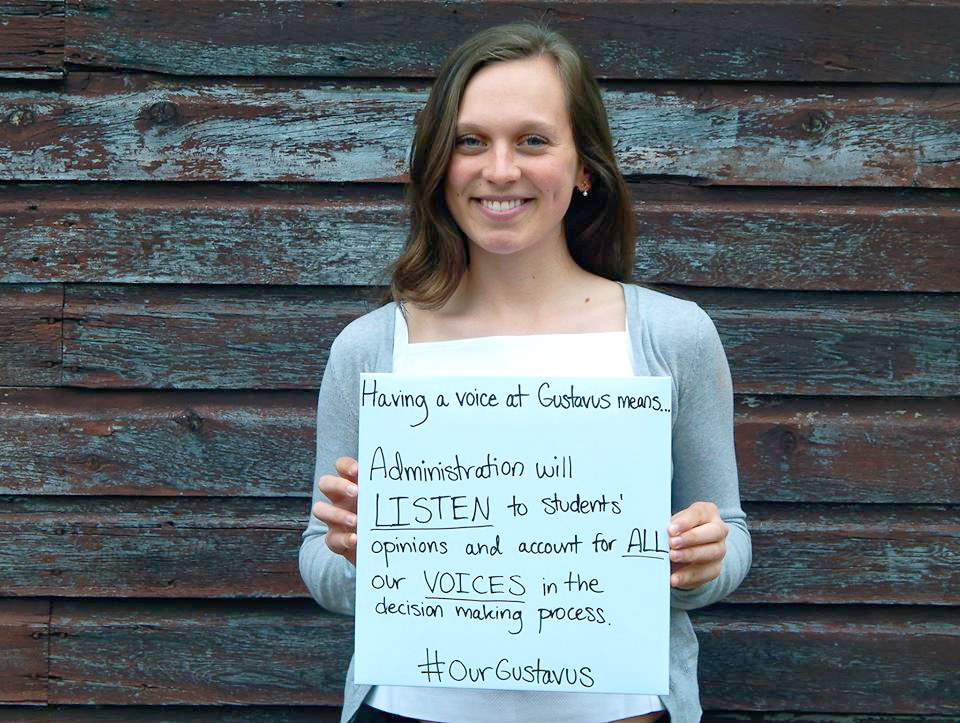 Having a voice at Gustavus means...
Administration will
LISTEN to students'
opinions and account for ALL
our VOICES in the
decision making process.
#OurGustavus